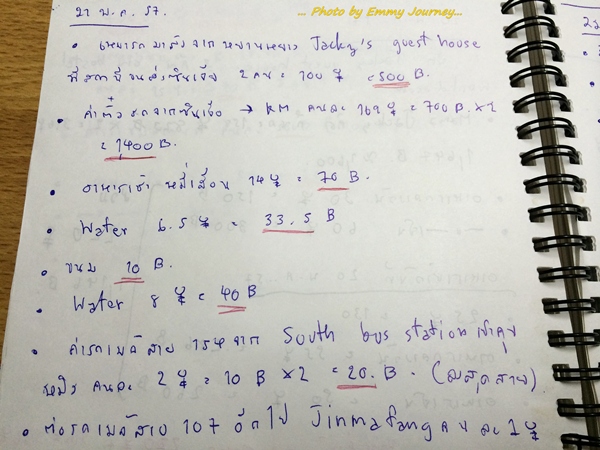 ... Photo by Emmy Journey...
21 พ.ค. 57.
• เหมารถมาส่งจากหยวนหยาง Jacky's guest house
ที่สถานีขนส่งซินเจีย 2 คน = 100 ¥ = 500 B.
• ค่าตั๋วรถจากซินเจีย → KM คนละ 169 ¥ = 700 B. x 2
= 1,400 B.
• อาหารเช้า หมี่เลือง 14 ¥ = 70 B.
• Water 6.5 ¥ = 33.5 B
• ขนม 10 B.
• Water 8 ¥ = 40 B
• ค่ารถเมล์สาย 154 จาก South bus station เข้าคุน
หมิง คนละ 2 ¥ = 10 B x 2 = 20. B. (ลงสุดสาย)
• ต่อรถเมล์สาย 107 อีกไป Jinmafang คนละ 1 ¥